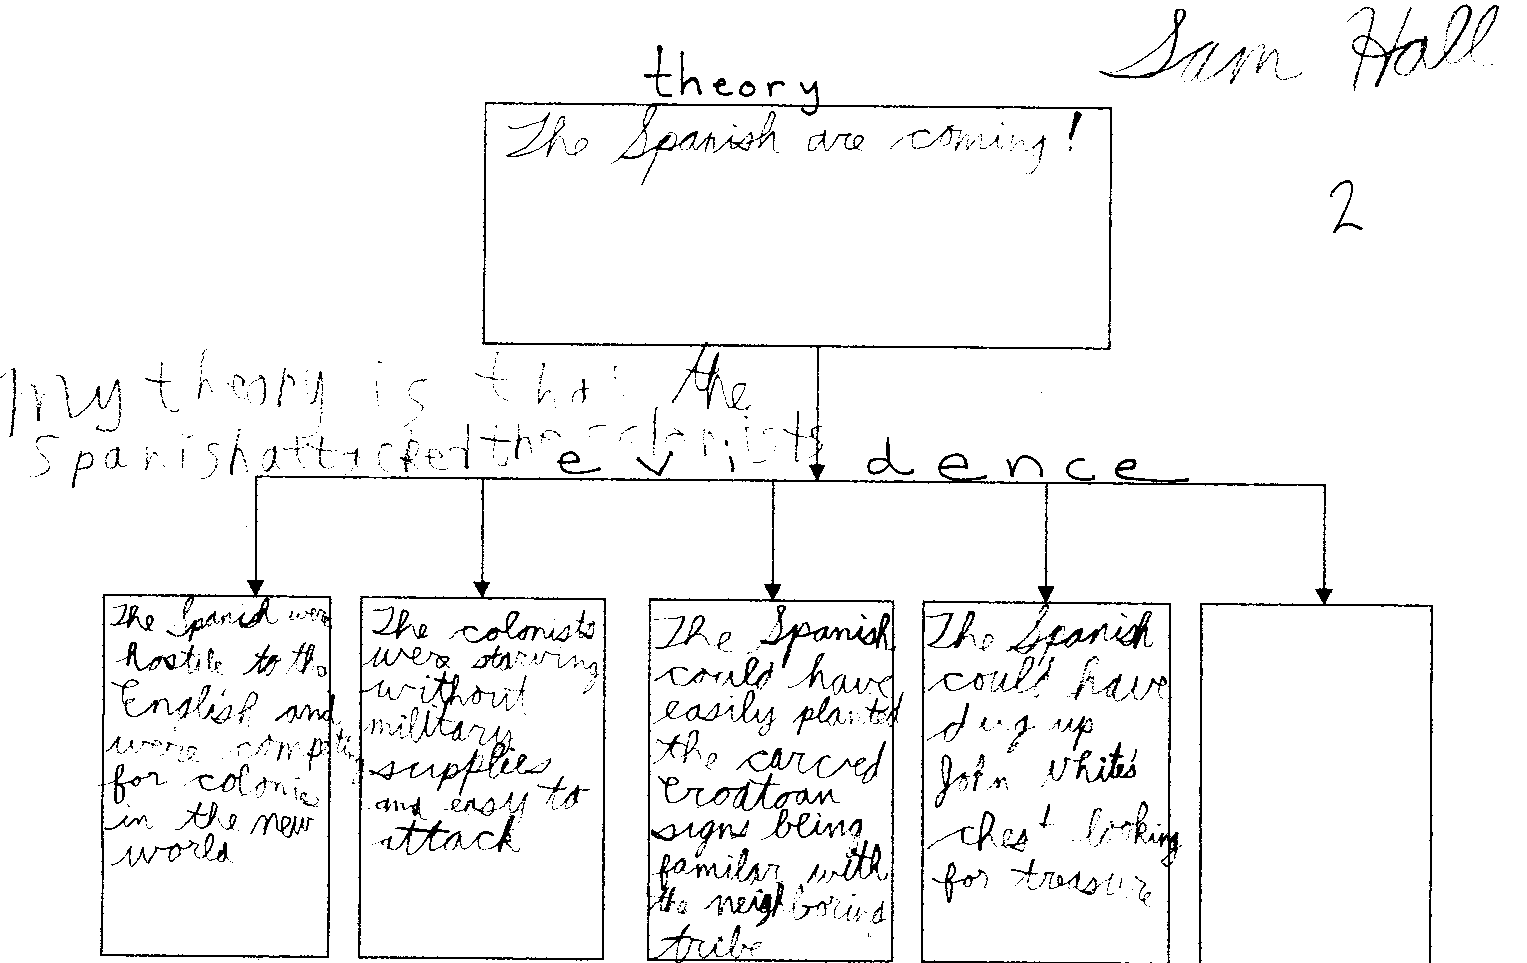 Sam Hall
theory
The Spanish are coming!
2
My theory is that the
Spanish attacked the colonists
evidence
The Spanish were
hostile to the
English and
were competing
for colonies
in the new
world
The colonists
were starving
without
military
supplies
and easy to
attack
The Spanish
could have
easily planted
the carved
Croatoan
signs being
familar with
the neighboring
tribe
The Spanish
could have
dug up
John White's
chest looking
for treasure